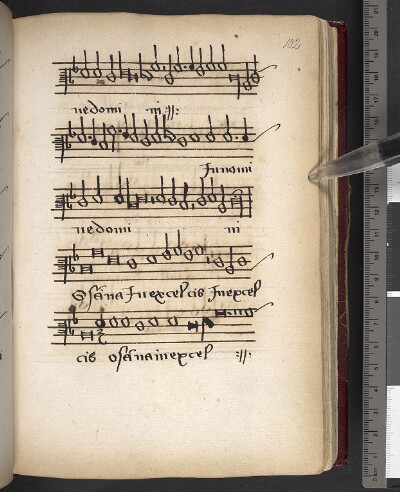 102
nedomi ni :||:
Innomi
nedomi ni
Osãna Inexcelcis Inexcel
cis osãnainexcel :||: